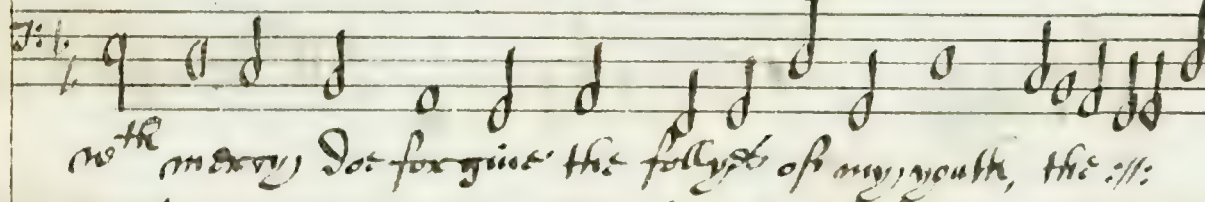 wth mercy, doe forgive the follyes of my, youth, the :||: